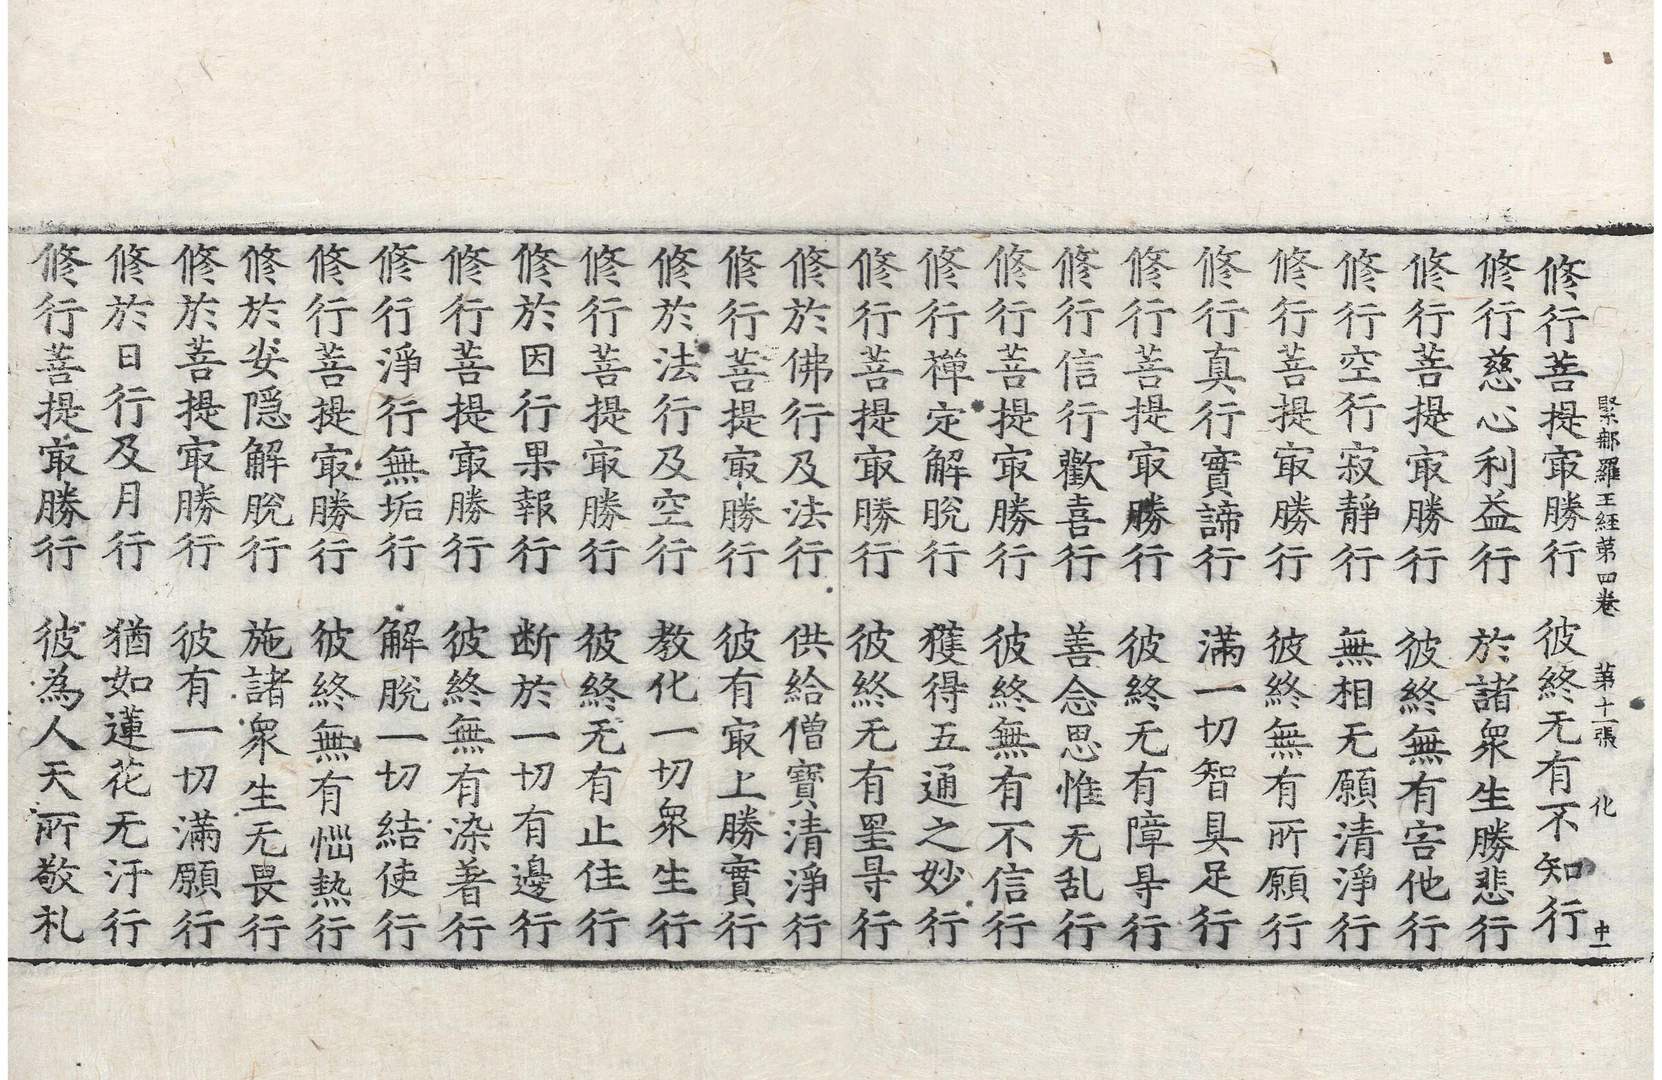 緊那羅王経第四卷 第十一張 化 中一
修行菩提㝡勝行 彼終无有不知行
修行慈心利益行 於諸衆生勝悲行
修行菩提㝡勝行 彼終無有害他行
修行空行寂静行 無相无願清淨行
修行菩提㝡勝行 彼終無有所願行
修行真行實諦行 滿一切智具足行
修行菩提㝡勝行 彼終无有障㝵行
修行信行歡喜行 善念思惟无乱行
修行菩提㝡勝行 彼終無有不信行
修行禪定解脫行 獲得五通之妙行
修行菩提㝡勝行 彼終无有罣㝵行
修於佛行及法行 供給僧寶清淨行
修行菩提㝡勝行 彼有㝡上勝實行
修於法行及空行 教化一切衆生行
修行菩提㝡勝行 彼終无有止住行
修於因行果報行 断於一切有邊行
修行菩提㝡勝行 彼終無有染著行
修行淨行無垢行 解脫一切結使行
修行菩提㝡勝行 彼終無有㤪熱行
修於安隱解脫行 施諸衆生无畏行
修於菩提㝡勝行 彼有一切滿願行
修於日行及月行 猶如蓮花无汙行
修行菩提㝡勝行 彼為人天所敬礼